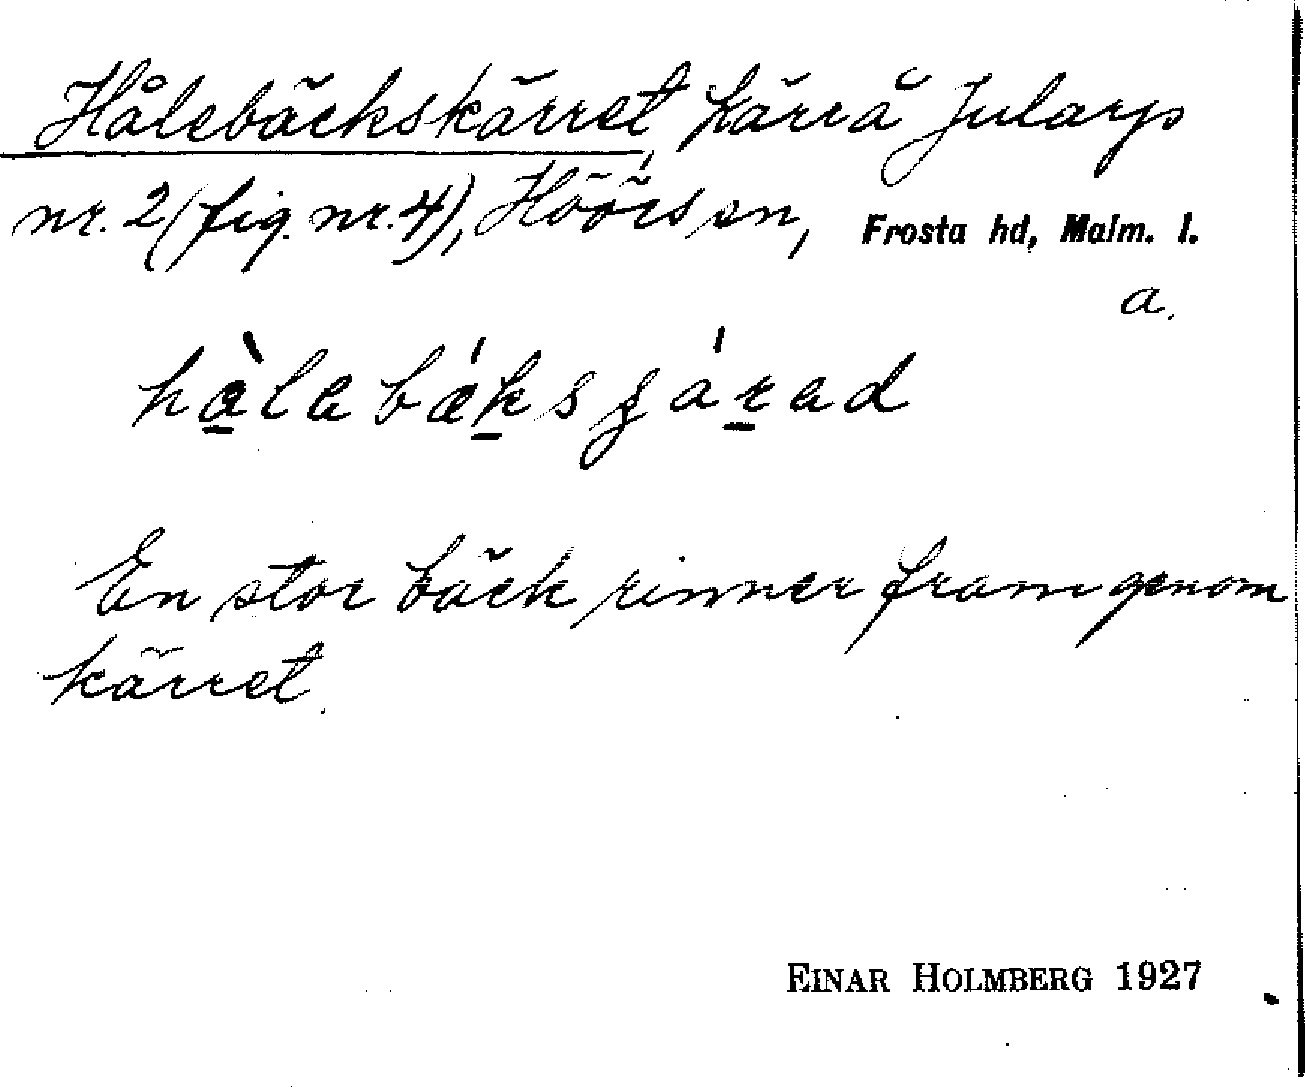 Hålebäckskärret kärr å Jularp
nr. 2 (fig. nr. 4), Höörs sn, Frosta hd, Malm. l.
a.
En stor bäck rinner fram genom
kärret.
EINAR HOLMBERG 1927